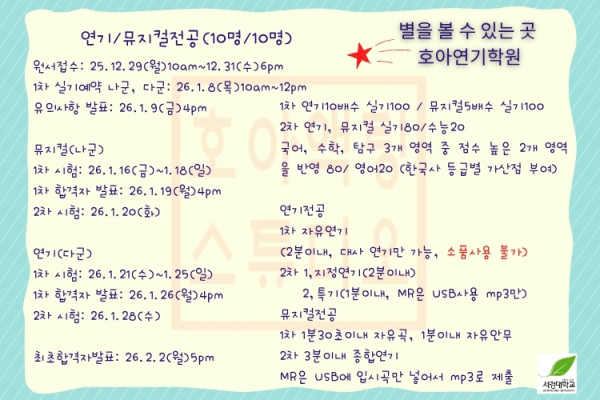 연기/뮤지컬전공(10명/10명)
별을 볼 수 있는 곳
호아연기학원
원서접수: 25.12.29(월)10am~12.31(수)6pm
1차 실기예약 나군, 다군: 26.1.8(목)10am~12pm
유의사항 발표: 26.1.9(금)4pm
뮤지컬(나군)
1차 시험: 26.1.16(금)~1.18(일)
1차 합격자 발표: 26.1.19(월)4pm
2차 시험: 26.1.20(화)
연기(다군)
1차 시험: 26.1.21(수)~1.25(일)
1차 합격자 발표: 26.1.26(월)4pm
2차 시험: 26.1.28(수)
최초합격자발표: 26.2.2(월)5pm
1차 연기10배수 실기100 / 뮤지컬5배수 실기100
2차 연기, 뮤지컬 실기80/수능20
국어, 수학, 탐구 3개 영역 중 점수 높은 2개 영역
을 반영 80/ 영어20 (한국사 등급별 가산점 부여)
연기전공
1차 자유연기
(2분이내, 대사 연기만 가능, 소품사용 불가)
2차 1,지정연기(2분이내)
2,특기(1분이내, MR은 USB사용 mp3만)
뮤지컬전공
1차 1분30초이내 자유곡, 1분이내 자유안무
2차 3분이내 종합연기
MR은 USB에 입시곡만 넣어서 mp3로 제출
호아액팅
스튜디오
서경대학교